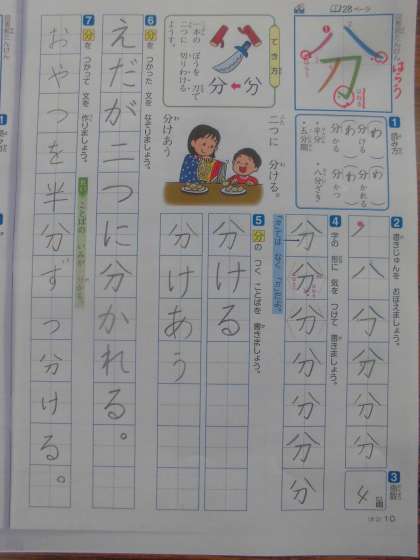 28ページ
分
はらう
1 読み方
(わ)ける
分ける
(わ)かれる
分かれる
(わ)かる
分かる
(わ)かつ
分かつ
・半分
・八分ざき
・五分間
でき方
分←分
一本の ぼうを 刀で
二つに 切りわける
ようす。
二つに 分ける。
分けあう
2 書きじゅんを おぼえましょう。
ノ八分分分分分
3 画数
4画
4 字の 形に 気を つけて 書きましょう。
「こ」では なく「こ」だよ。
分分分分分分分
5 分の つく ことばを 書きましょう。
分ける
分けあう
6 分を つかった 文を なぞりましょう。
えだが二つに分かれる。
7 分を つかって 文を 作りましょう。
おやつを半分ずつ分ける。
10